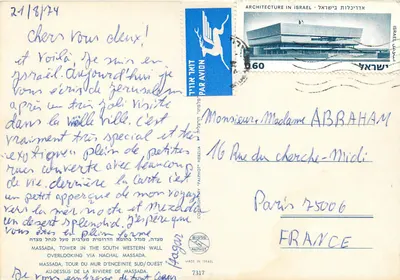 21/8/74
Chers vous deux!
et voilà, je suis en
Israël. Aujourd'hui je
vous écris de Jerusalem
après un très joli visite
dans la vielle ville. C'est
vraiment très special et très
exotique, plein de petites
rues couverte avec beaucoup
de vie. derrière la carte c'est
un petit apperçue de mon voyage
vers la mer morte et Mezada
un desert splendid. J'espère que
vous êtes en pleine forme
MASSADA, TOWER IN THE SOUTH WESTERN WALL
OVERLOOKING VIA NACHAL MASSADA.
MASSADA, TOUR DU MUR D'ENCEINTE SUD/OUEST
AU-DESSUS DE LA RIVIERE DE MASSADA.
Je vous de tout
דואר אויר
PAR AVION
MADE IN ISRAEL
7317
ARCHITECTURE IN ISRAEL • אדריכלות בישראל
0.60
ישראל
Monsieur-Madame ABRAHAM
16 Rue du cherche-Midi
Paris 75006
FRANCE